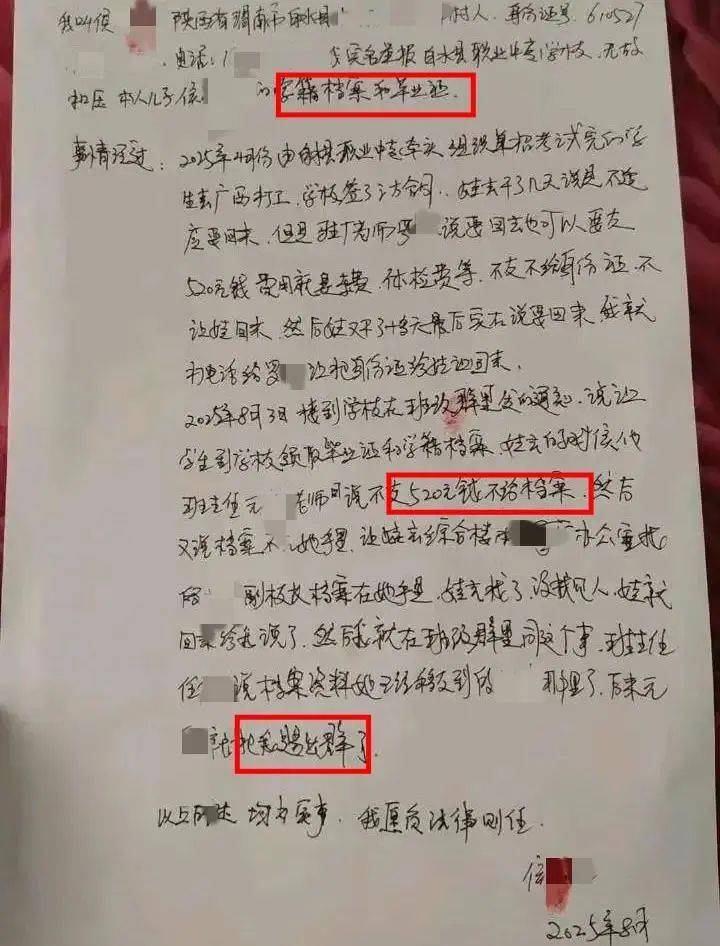 我叫侯 陕西省渭南市白水县 村人，身份证号，610527
电话：1 实名举报白水县职业中专学校，无故
扣压 本人儿子侯 的学籍档案和毕业证.
事情经过：2025年4月份由白水县职业中专牵头 组织单招考试完的学
生去广西打工，学校签了订合同，娃去干了几天说是不适
应要回来，但是驻厂老师罗 说要回去也可以要交
520元钱 费用就是车费、体检费等，不交不给身份证，不
让娃回来，然后娃又干了十多天最后实在说要回来，我就
打电话给罗 让把身份证给娃让回来.
2025年8月3日 接到学校在班级群里发的通知，说让
学生到学校领取毕业证和学籍档案，娃去的时候他
班主任元 老师说不交520元钱不给档案，然后
又说档案不 她手里，让娃去综合楼 办公室找
的 副校长档案在她手里，娃去找了，没找见人，娃就
回来给我说了，然后我就在班级群里问这个事，班主任
任 说档案资料她已经移交到 那里了，后来元
把我踢出群了.
以上 均为实事，我愿负法律则任.
侯
2025年8月